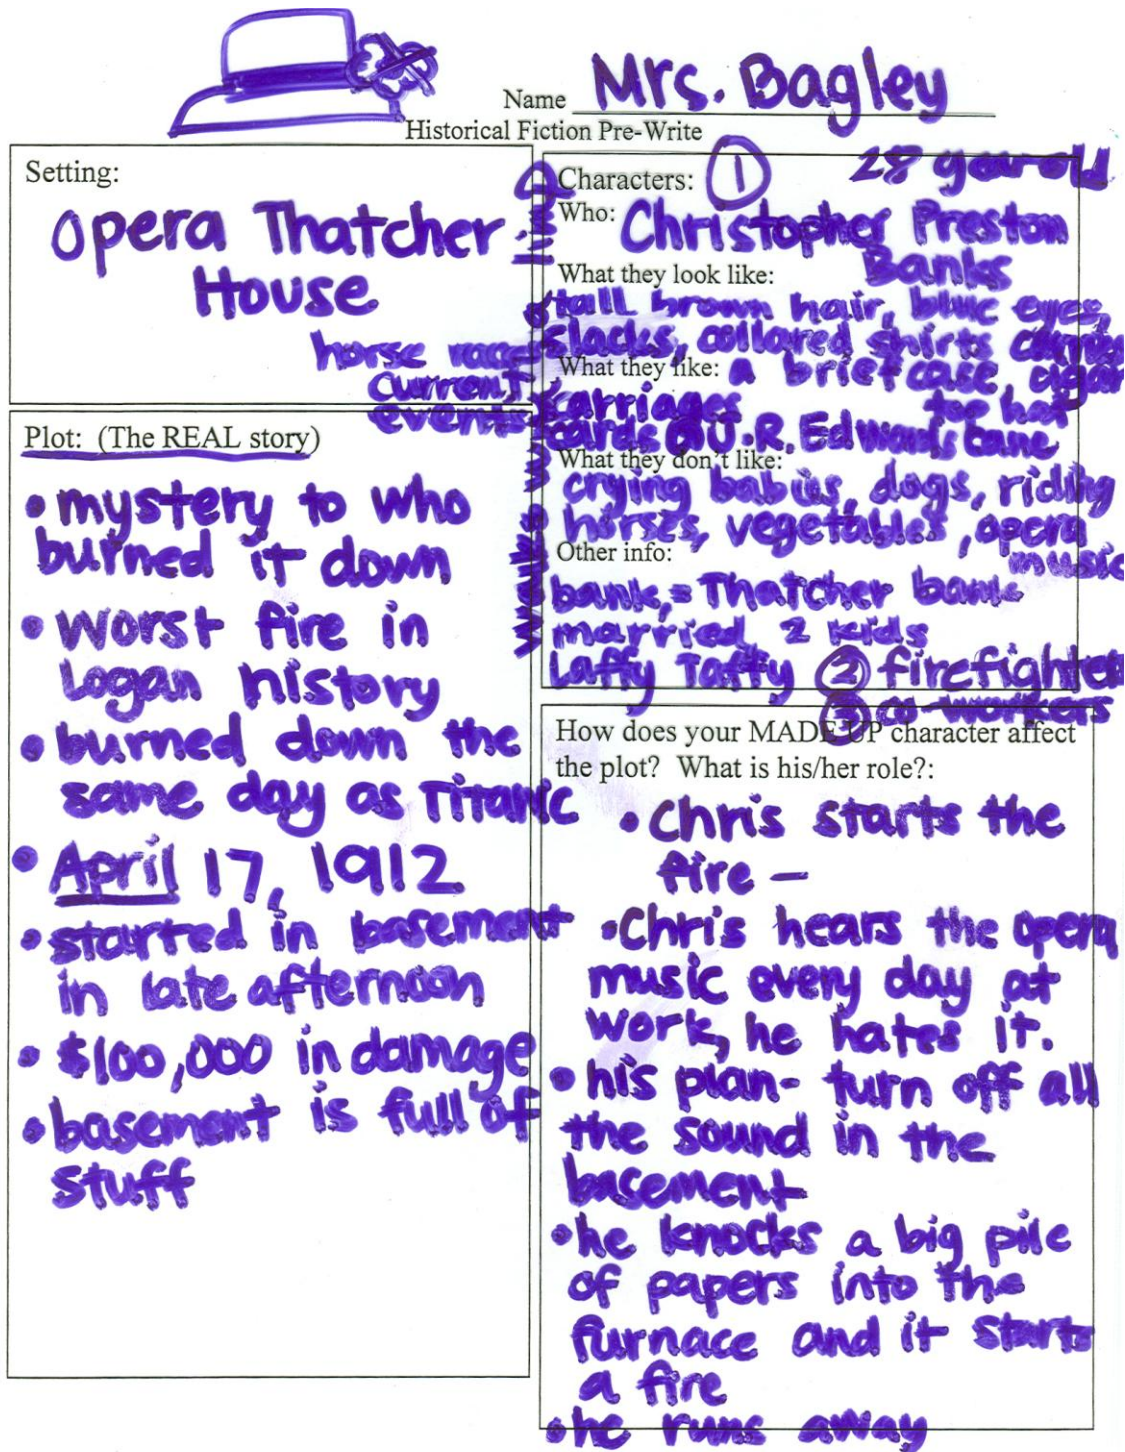 Name Mrs. Bagley
Historical Fiction Pre-Write
Setting:
Opera Thatcher
House
horse race
current
events
Plot: (The REAL story)
• mystery to who
burned it down
• worst fire in
Logan history
• burned down the
same day as Titanic
• April 17, 1912
• started in basement
in late afternoon
• $100,000 in damage
• basement is full of
stuff
Characters: 1 28 year old
Who: Christopher Preston
Banks
What they look like:
tall brown hair, blue eyes,
slacks, collared shirts carries
a briefcase cigar
top hat
cane
What they like:
carriages
cards @ J.R. Edwards
What they don't like:
crying babies, dogs, riding
horses, vegetables, opera
music
Other info:
bank, = Thatcher bank
married 2 kids
Laffy Taffy 2 firefighters
3 co-workers
How does your MADE UP character affect
the plot? What is his/her role?:
• Chris starts the
fire —
• Chris hears the opera
music every day at
work, he hates it.
• his plan- turn off all
the sound in the
basement
• he knocks a big pile
of papers into the
furnace and it starts
a fire
• he runs away